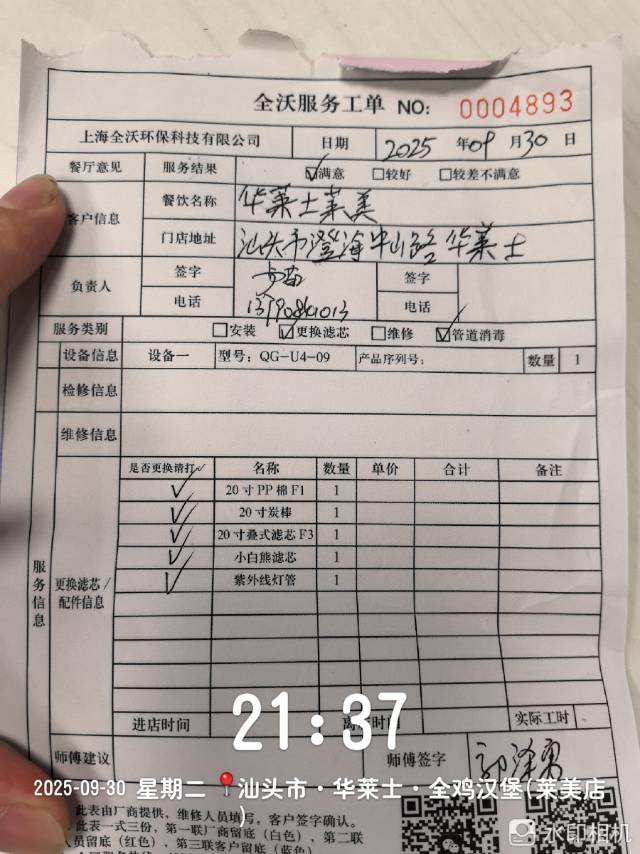 全沃服务工单 NO: 0004893
上海全沃环保科技有限公司 日期 2025 年 09 月 30 日
餐厅意见 服务结果 ☑满意 □较好 □较差不满意
客户信息 餐饮名称 华莱士莱美
门店地址 汕头市澄海中山路华莱士
负责人 签字 签字
电话 电话
服务类别 □安装 ☑更换滤芯 □维修 ☑管道消毒
设备信息 设备一 型号: QG-U4-09 产品序列号: 数量 1
检修信息
维修信息
服务信息 更换滤芯/配件信息
是否更换请打✓ 名称 数量 单价 合计 备注
✓ 20寸PP棉F1 1
✓ 20寸炭棒 1
✓ 20寸叠式滤芯F3 1
✓ 小白熊滤芯 1
✓ 紫外线灯管 1
进店时间 离店时间 实际工时
21:37
师傅建议 师傅签字
2025-09-30 星期二 汕头市·华莱士·全鸡汉堡(莱美店
)
此表由厂商提供，维修人员填写，客户签字确认。
此表一式三份，第一联厂商留底（白色），第二联
人员留底（红色），第三联客户留底（蓝色）
水印相机